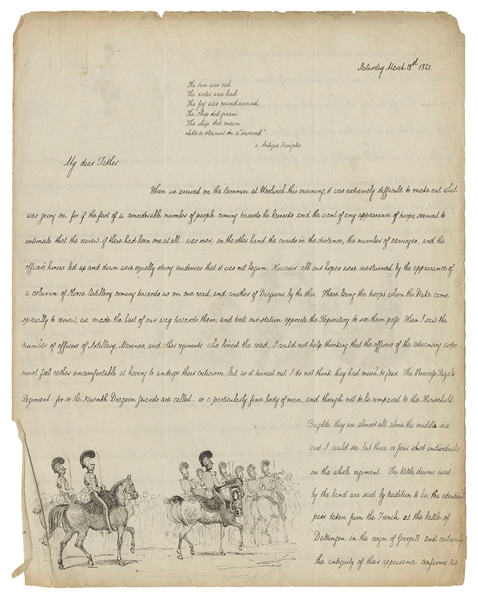 Saturday March 18th
The sun was red
The water was lead
The fog was round around
The ship did groan
The ship did moan
Like a
My dear Father
When we arrived on the Common at Woolwich this morning, it was extremely difficult to make out what
was going on, for if the fact of a considerable number of people coming towards the barracks and the want of any appearance of troops seemed to
intimate that the review if there had been one at all was over, on the other hand the crowds in the distance, the number of carriages, and the
officers horses led up and down were equally strong evidences that it was not begun. However all our hopes were reassured by the appearance of
a column of Horse Artillery coming towards us on one road, and another of Dragoons by the other. These being the troops whom the Duke came
specially to review, we made the best of our way towards them, and took our station opposite the Repository to see them pass. When I saw the
number of officers of Artillery, Marines, and other regiments who lined the road, I could not help thinking that the officers of the corps
must feel rather uncomfortable at having to undergo their criticism, but as it turned out I do not think they had much to fear. The Princess Royal's
Regiment for so the Seventh Dragoon Guards are called is a particularly fine body of men, and though not to be compared to the Household
Brigade they are almost all above the middle size
and I could see but three or four short individuals
in the whole regiment. The kettle drums used
by the band are said by tradition to be the identical
pair taken from the French at the battle of
Dettingen in the reign of and certainly
the antiquity of their appearance confirms the